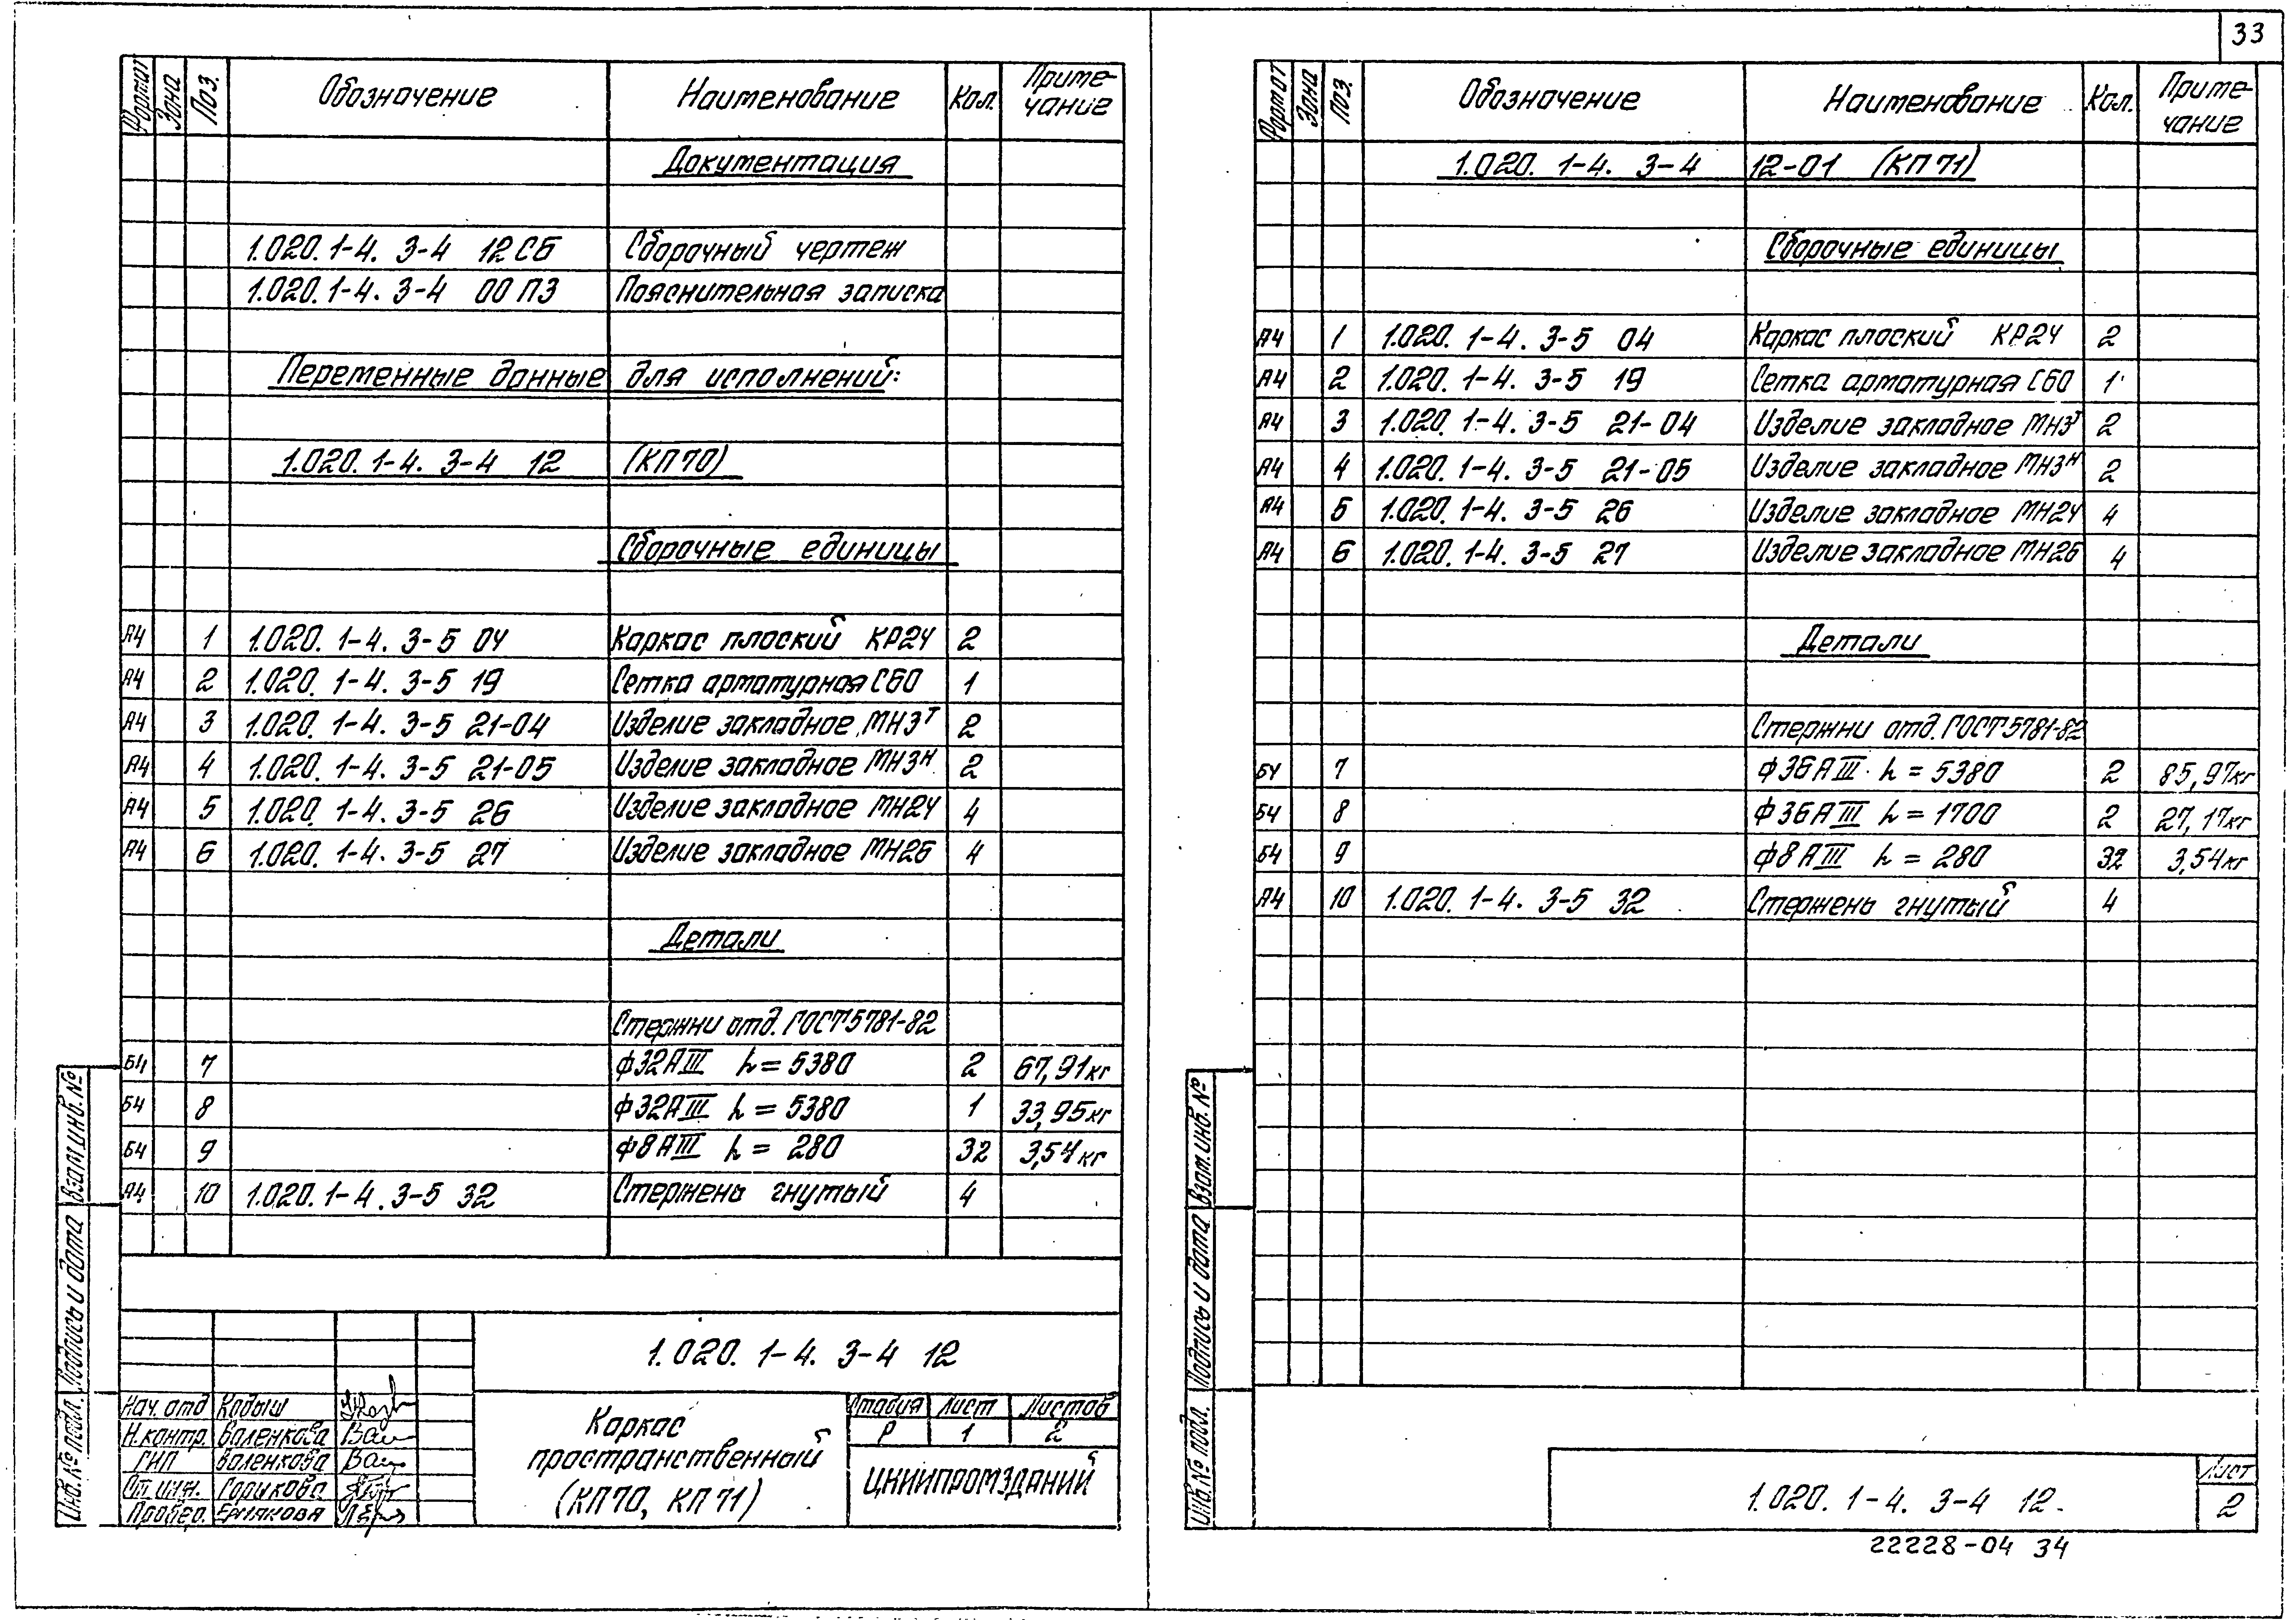 33
Формат Зона Поз. Обозначение Наименование Кол. Приме-
чание
Документация
1.020.1-4. 3-4 12 СБ Сборочный чертеж
1.020.1-4. 3-4 00 ПЗ Пояснительная записка
Переменные данные для исполнений:
1.020.1-4. 3-4 12 (КП70)
Сборочные единицы
А4 1 1.020.1-4. 3-5 04 Каркас плоский КР24 2
А4 2 1.020.1-4. 3-5 19 Сетка арматурная С60 1
А4 3 1.020.1-4. 3-5 21-04 Изделие закладное МН3т 2
А4 4 1.020.1-4. 3-5 21-05 Изделие закладное МН3н 2
А4 5 1.020.1-4. 3-5 26 Изделие закладное МН24 4
А4 6 1.020.1-4. 3-5 27 Изделие закладное МН26 4
Детали
Стержни отд. ГОСТ 5781-82
Б4 7 Ф32АIII L=5380 2 67,91кг
Б4 8 Ф32АIII L=5380 1 33,95кг
Б4 9 Ф8АIII L=280 32 3,54кг
А4 10 1.020.1-4. 3-5 32 Стержень гнутый 4
1.020.1-4. 3-4 12
Нач. отд Кодыш
Н.контр. Валенкова
ГИП Валенкова
Ст. инж. Горикова
Провер. Ермакова
Каркас
пространственный
(КП70, КП71)
Стадия Лист Листов
Р 1 2
ЦНИИПРОМЗДАНИЙ
Инв.№ подл. Подпись и дата Взам.инв.№
Формат Зона Поз. Обозначение Наименование Кол. Приме-
чание
1.020.1-4. 3-4 12-01 (КП71)
Сборочные единицы
А4 1 1.020.1-4. 3-5 04 Каркас плоский КР24 2
А4 2 1.020.1-4. 3-5 19 Сетка арматурная С60 1
А4 3 1.020.1-4. 3-5 21-04 Изделие закладное МН3т 2
А4 4 1.020.1-4. 3-5 21-05 Изделие закладное МН3н 2
А4 5 1.020.1-4. 3-5 26 Изделие закладное МН24 4
А4 6 1.020.1-4. 3-5 27 Изделие закладное МН26 4
Детали
Стержни отд. ГОСТ 5781-82
Б4 7 Ф36АIII L=5380 2 85,97кг
Б4 8 Ф36АIII L=1700 2 27,17кг
Б4 9 Ф8АIII L=280 32 3,54кг
А4 10 1.020.1-4. 3-5 32 Стержень гнутый 4
Инв.№ подл. Подпись и дата Взам.инв.№
1.020.1-4. 3-4 12.
Лист
2
22228-04 34